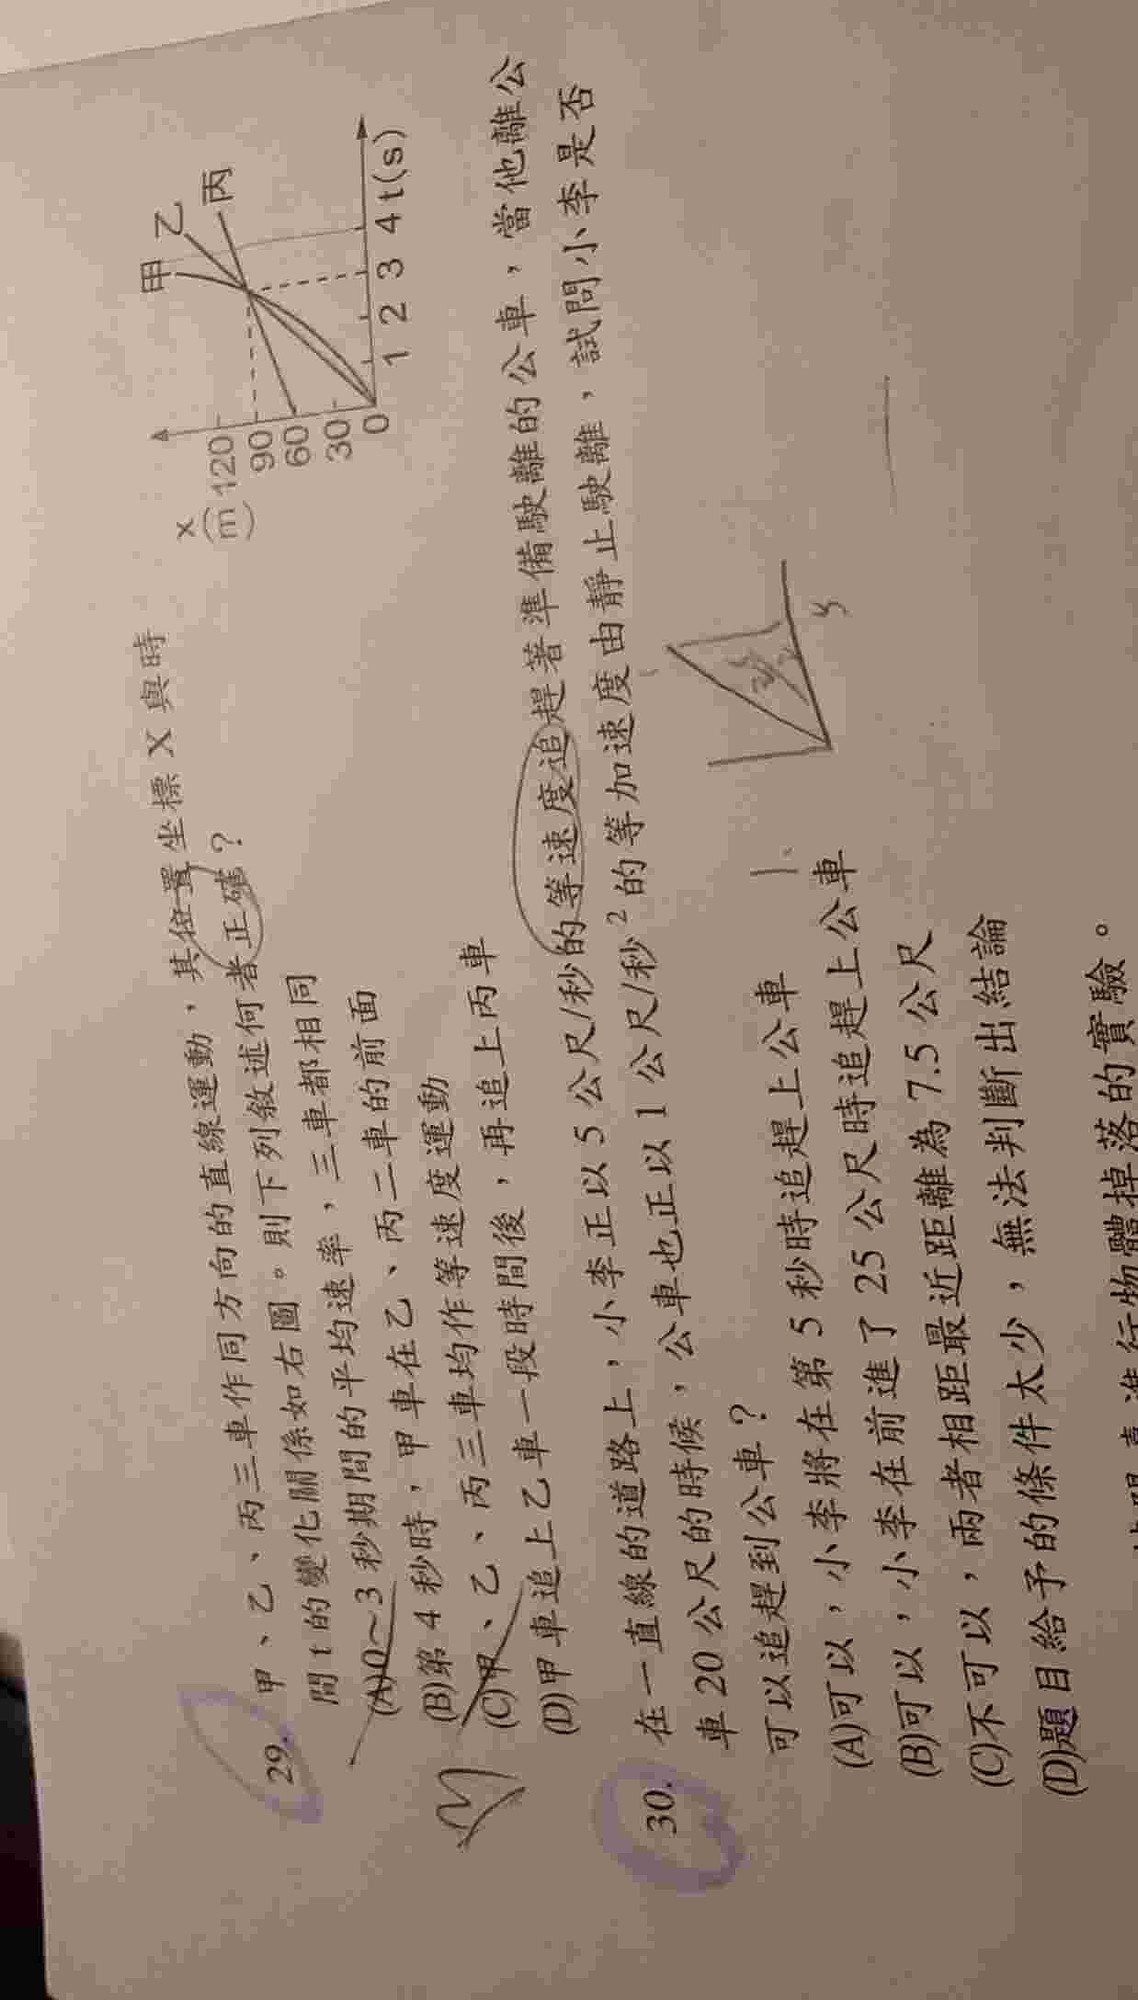 29. 甲、乙、丙三車作同方向的直線運動，其位置坐標 X 與時
間 t 的變化關係如右圖。則下列敘述何者正確？
(A)0～3 秒期間的平均速率，三車都相同
(B)第 4 秒時，甲車在乙、丙二車的前面
(C)甲、乙、丙三車均作等速度運動
(D)甲車追上乙車一段時間後，再追上丙車
x
(m)
120
90
60
30
0
1 2 3 4 t(s)
甲
乙
丙
30. 在一直線的道路上，小李正以 5 公尺/秒的等速度追趕著準備駛離的公車，當他離公
車 20 公尺的時候，公車也正以 1 公尺/秒² 的等加速度由靜止駛離，試問小李是否
可以追趕到公車？
(A)可以，小李將在第 5 秒時追趕上公車
(B)可以，小李在前進了 25 公尺時追趕上公車
(C)不可以，兩者相距最近距離為 7.5 公尺
(D)題目給予的條件太少，無法判斷出結論
行物體掉落的實驗。